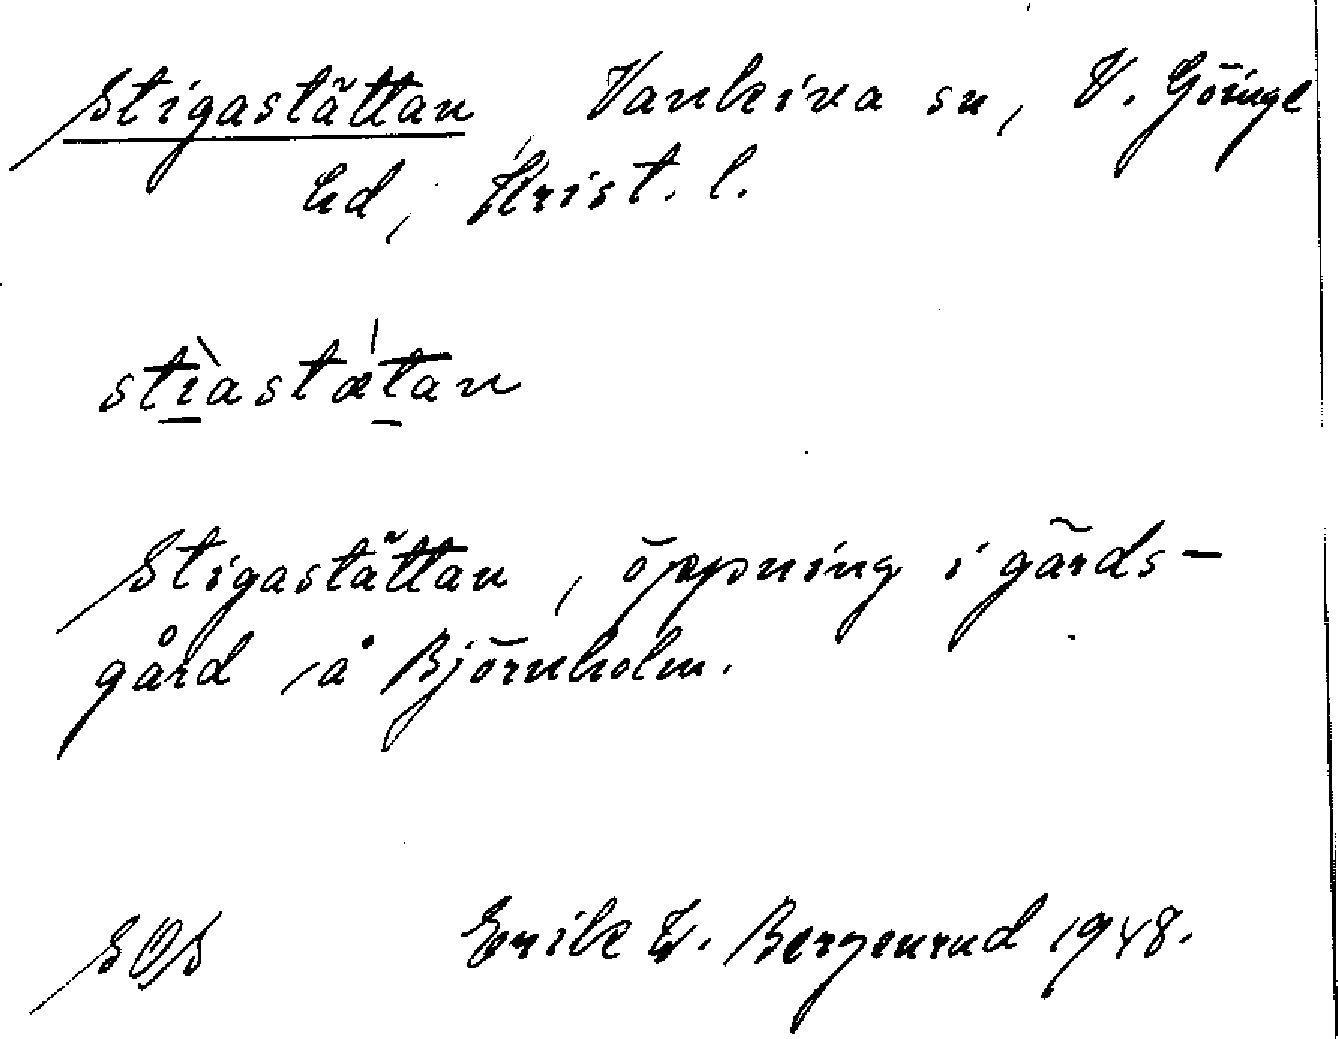 Stigastättan, Vankiva sn, V. Göinge
hd, Krist. l.
stìastætan
Stigastättan, öppning i gärds-
gård å Björnholm.
SOS Erik W. Bergenrud 1948.